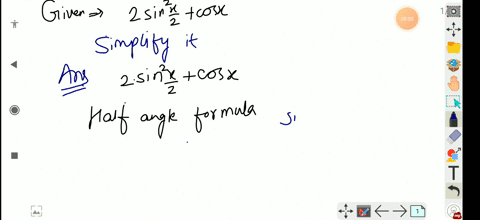 Given ⇒ 2 sin² x/2 + cosx
Simplify it
Ans 2. sin² x/2 + cosx
Half angle formula si